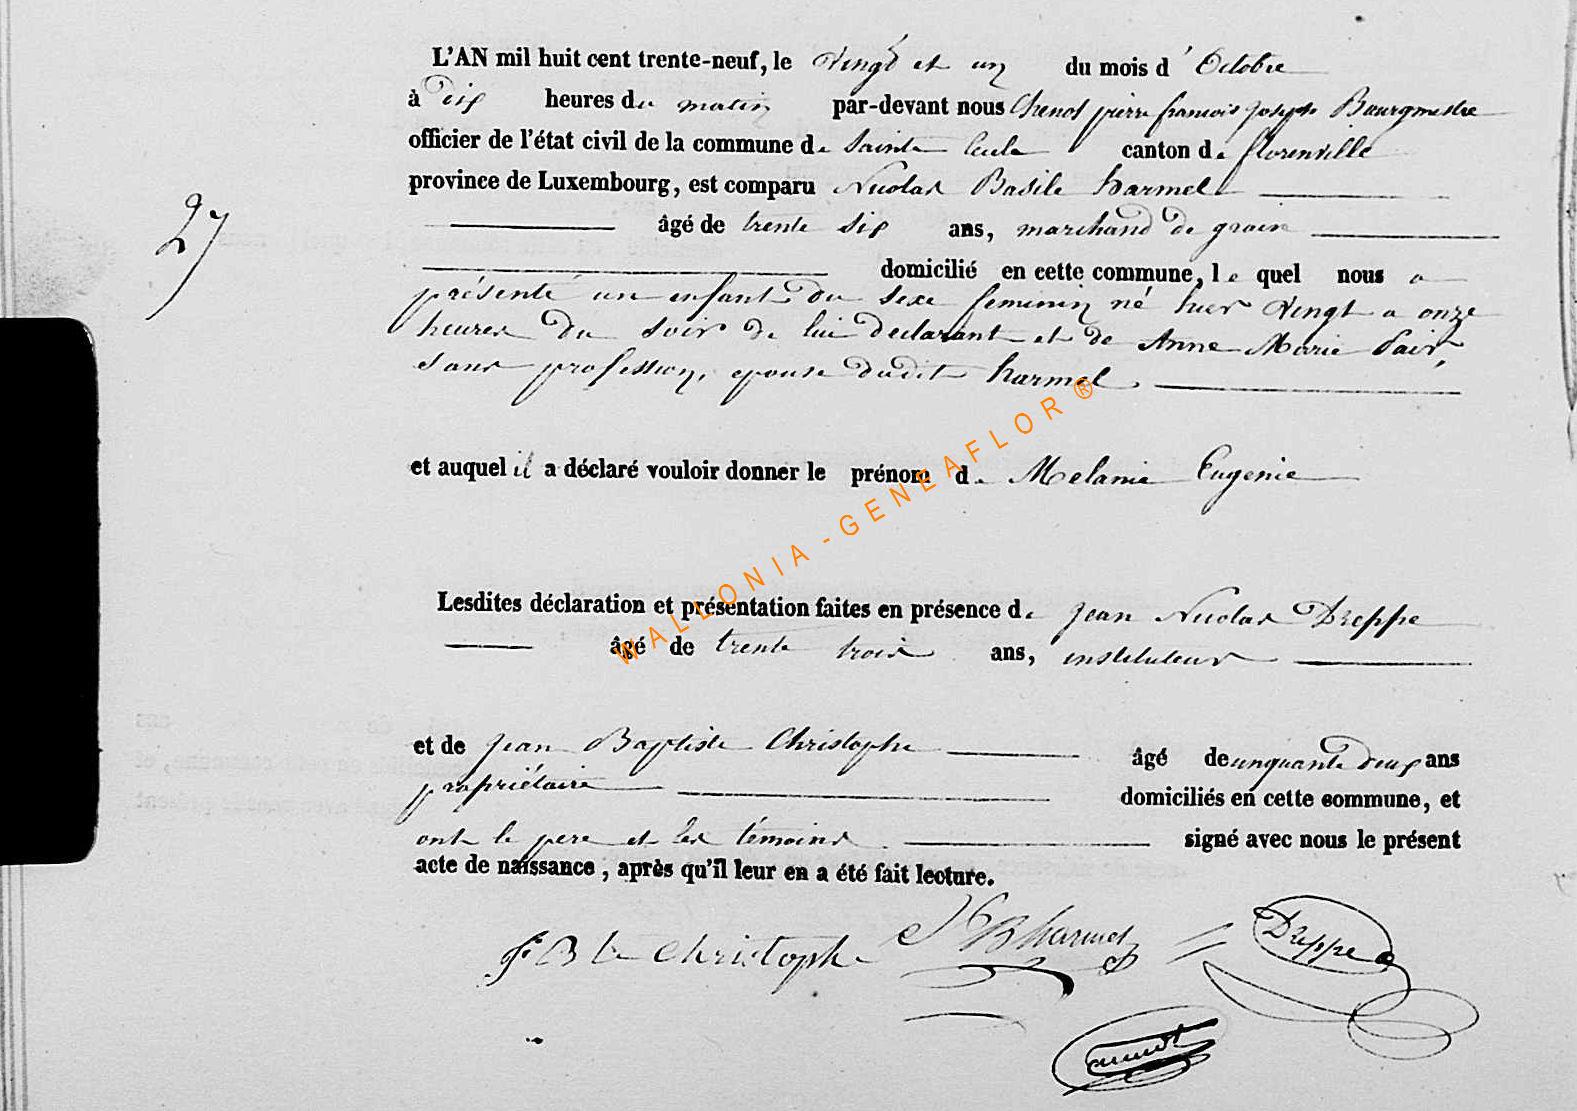 L'AN mil huit cent trente-neuf, le vingt et un du mois d' Octobre
à dix heures du matin par-devant nous Chenot pierre francois joseph Bourgmestre
officier de l'état civil de la commune de Sainte Cecile canton de florenville
province de Luxembourg, est comparu Nicolas Basile harmel
27
âgé de trente six ans, marchand de grain
domicilié en cette commune, le quel nous a
présenté un enfant du sexe feminin né hier vingt a onze
heures du soir de lui declarant et de Anne Marie
sans profession, epouse dudit harmel
et auquel il a déclaré vouloir donner le prénom de Melanie Eugenie
WALLONIA - GENEAFLOR ®
Lesdites déclaration et présentation faites en présence de jean Nicolas Dreppe
âgé de trente trois ans, instituteur
et de jean Baptiste Christophe âgé de cinquante deux ans
propriétaire domiciliés en cette commune, et
ont le pere et les témoins signé avec nous le présent
acte de naissance, après qu'il leur en a été fait lecture.
J B te Christophe NB harmel Dreppe